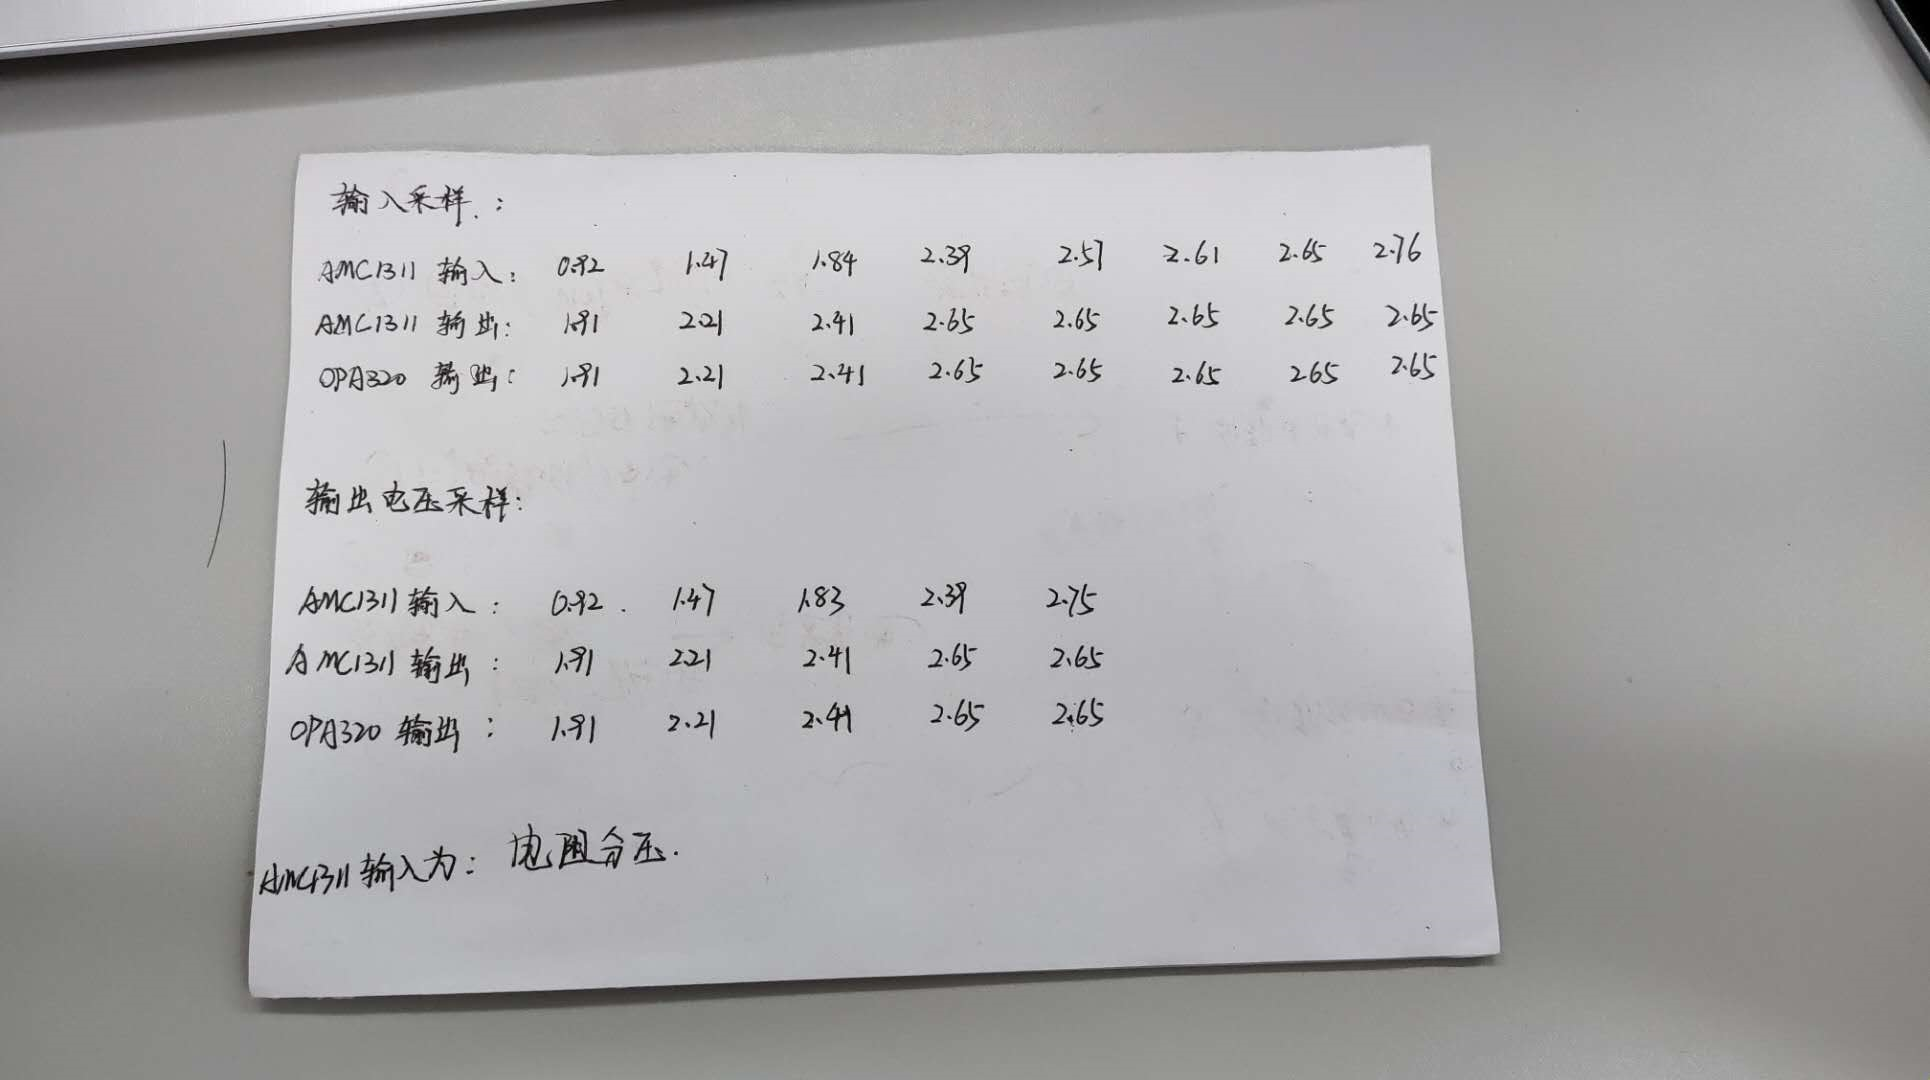 输入采样:
AMC1311 输入: 0.92 1.47 1.84 2.39 2.57 2.61 2.65 2.76
AMC1311 输出: 1.91 2.21 2.41 2.65 2.65 2.65 2.65 2.65
OPA320 输出: 1.91 2.21 2.41 2.65 2.65 2.65 265 2.65
输出电压采样:
AMC1311 输入: 0.92 . 1.47 1.83 2.39 2.75
AMC1311 输出: 1.91 221 2.41 2.65 2.65
OPA320 输出: 1.91 2.21 2.41 2.65 2.65
AMC1311 输入为: 电阻分压.